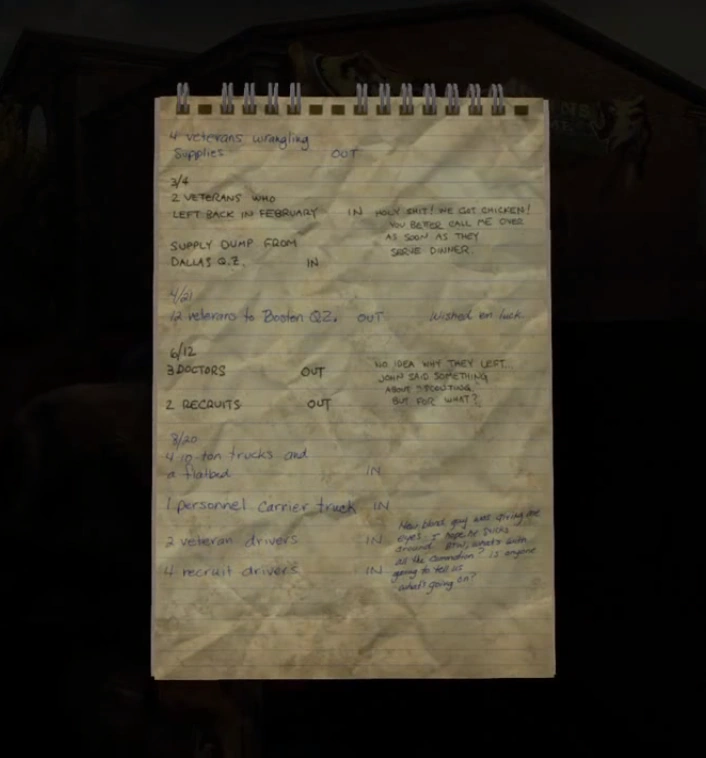 4 veterans wrangling
Supplies OUT
3/4
2 VETERANS WHO
LEFT BACK IN FEBRUARY IN
HOLY SHIT! WE GOT CHICKEN!
YOU BETTER CALL ME OVER
AS SOON AS THEY
SERVE DINNER.
SUPPLY DUMP FROM
DALLAS Q.Z. IN
4/21
12 veterans to Boston QZ. OUT
Wished em luck
6/12
3 DOCTORS OUT
NO IDEA WHY THEY LEFT
JOHN SAID SOMETHING
ABOUT SCOUTING.
BUT FOR WHAT?
2 RECRUITS OUT
8/20
4 10 ton trucks and
a flatbed IN
1 personnel carrier truck IN
2 veteran drivers IN
4 recruit drivers IN
New blond guy was giving me
eyes. I hope he sticks
around. BTW, what's with
all the commotion? Is anyone
going to tell us
what's going on?